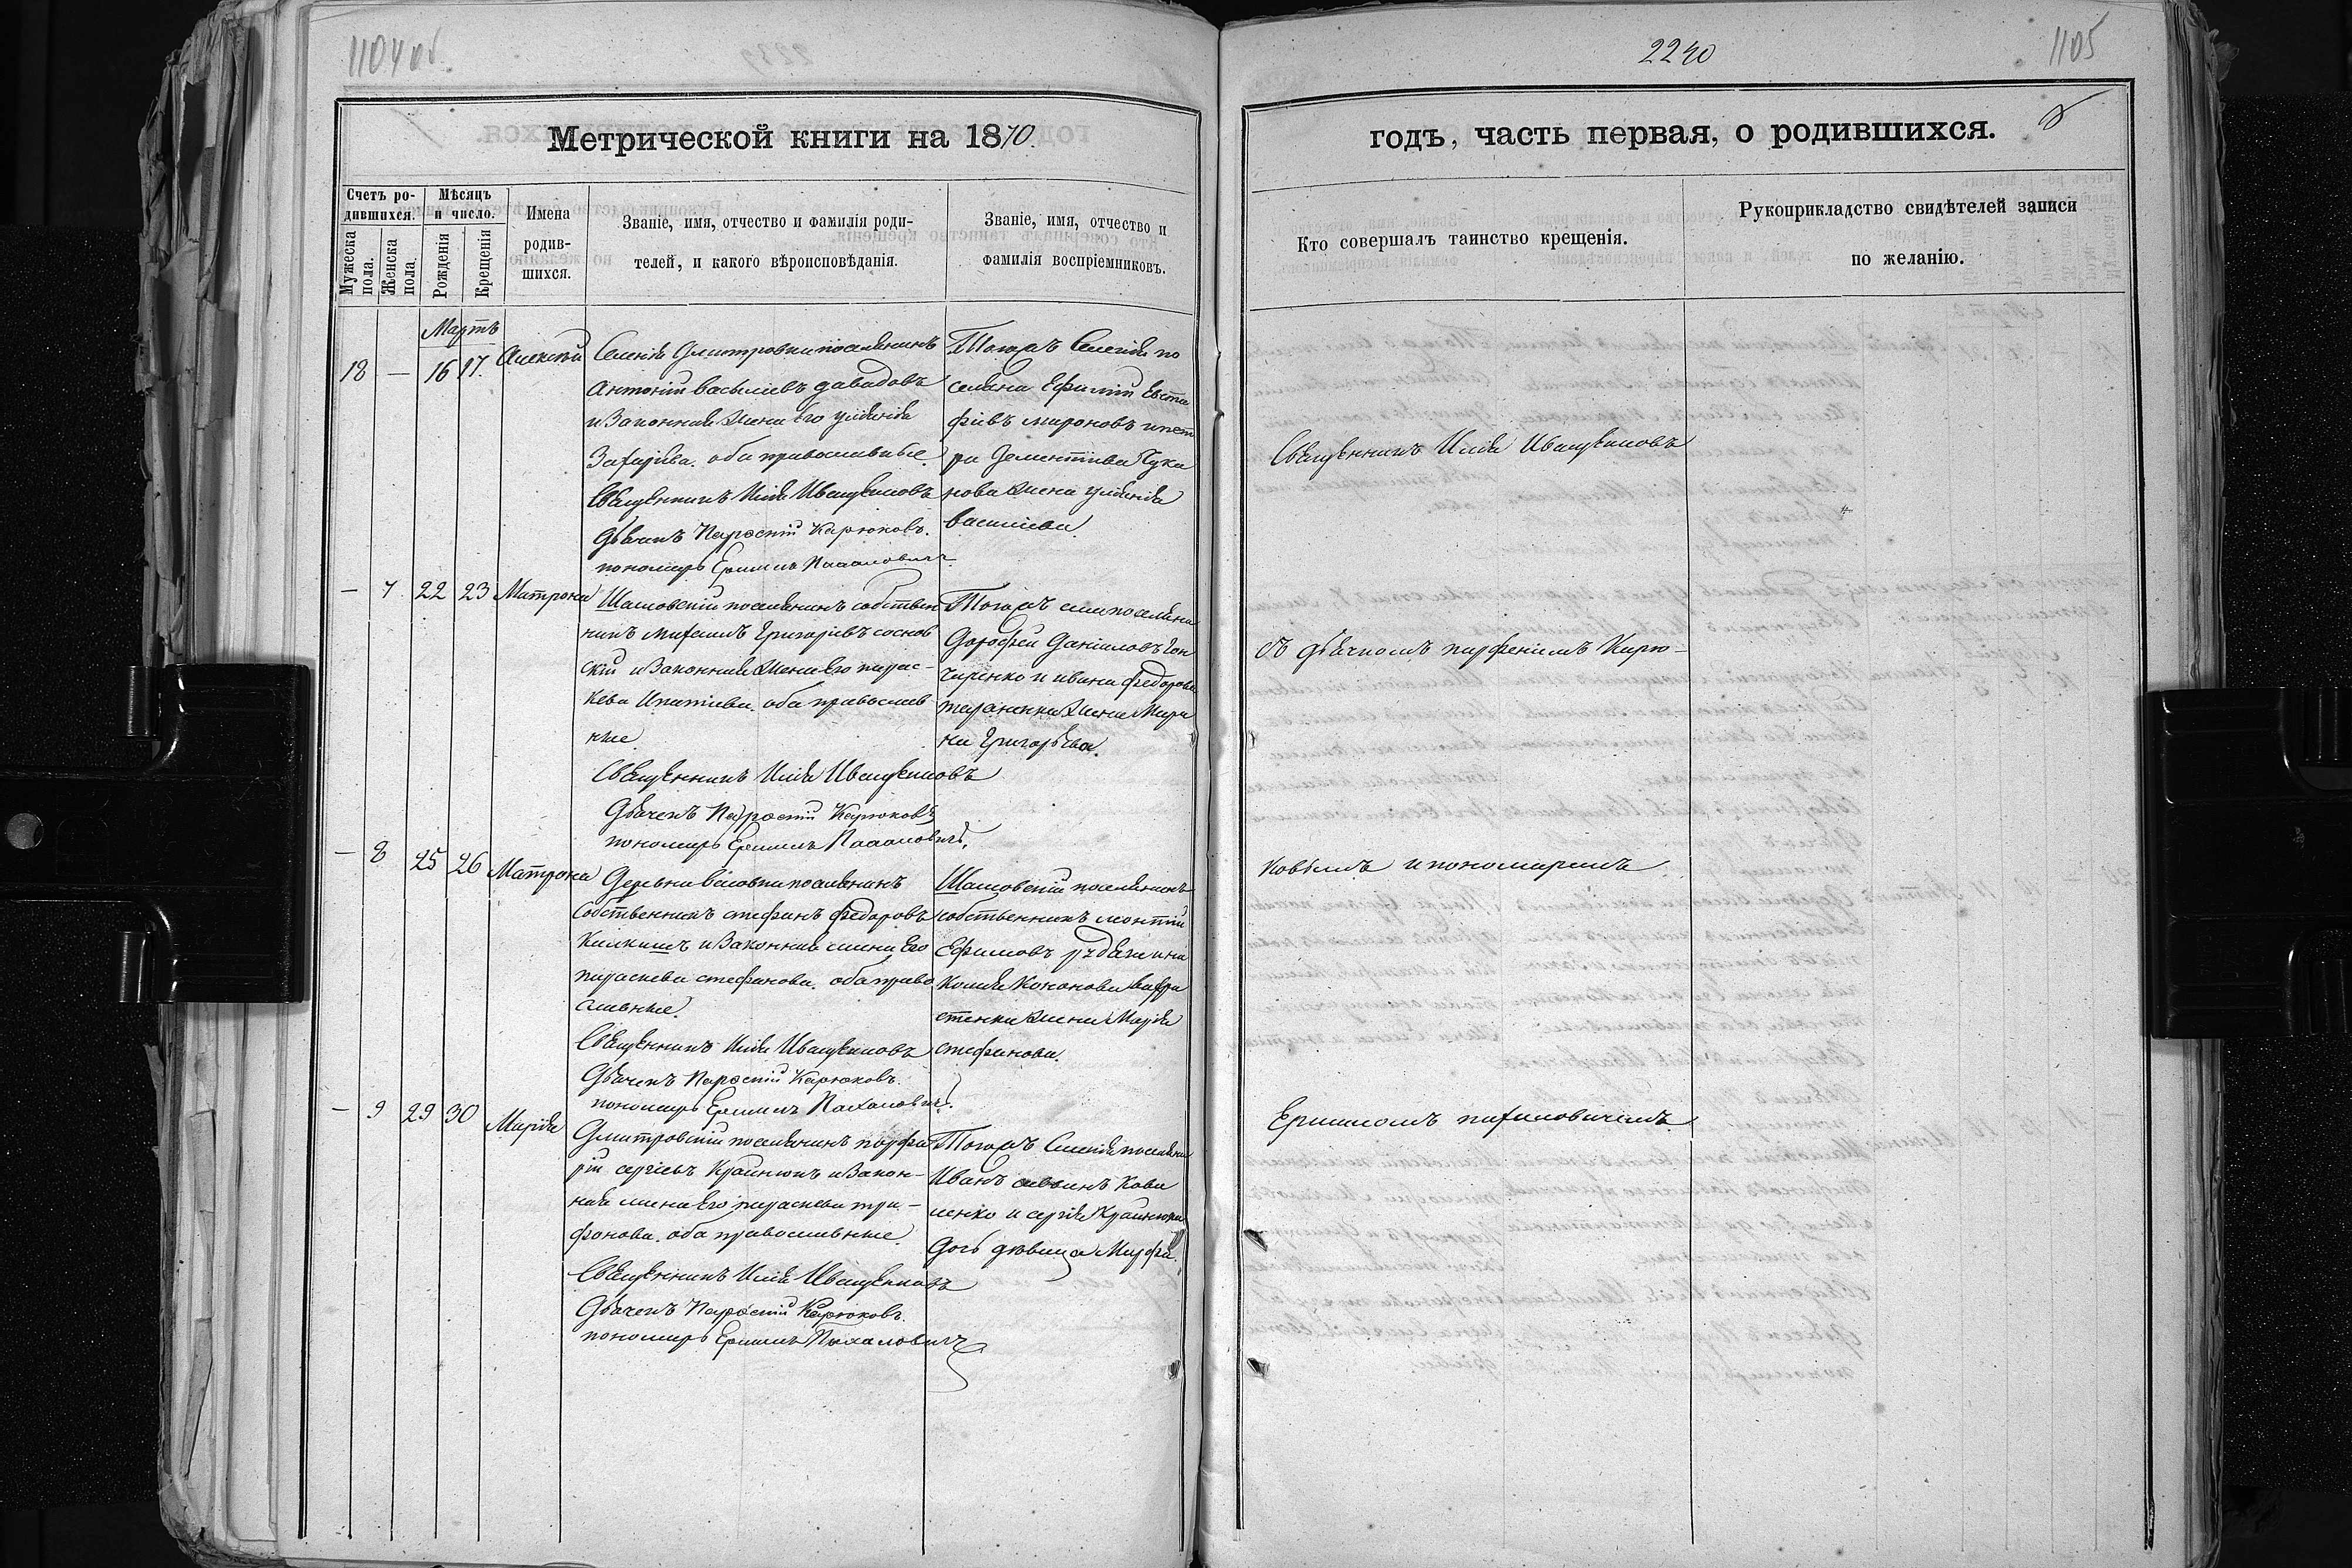 1104 об
2240
1105
Метрической книги на 1870.
годъ, часть первая, о родившихся.
Счетъ ро-
дившихся.
Мужеска
пола.
Женска
пола.
Мѣсяцъ
и число.
Рожденія
Крещенія
Имена
родив-
шихся.
Званіе, имя, отчество и фамилія роди-
телей, и какого вѣроисповѣданія.
Званіе, имя, отчество и
фамилія воспріемниковъ.
Кто совершалъ таинство крещенія.
Рукоприкладство свидѣтелей записи
по желанію.
Мартъ
18 — 16 17. Алексѣй
Селенія Дмитровки поселянинъ
Антоній Васильевъ Давидовъ
и Законная жена Его Уліянія
оба православные.
Священникъ Илія Иващенковъ
Дьячекъ Карюковъ.
пономарь
Тогожъ Селенія по
селяне Ефимій Евста
фіевъ мироновъ и пет
ра Дементіева Чука
нова жена Уліянія
василіева.
Священникъ Илія Иващенковъ
— 7 22 23 Матрона
поселянинъ собствен
никъ михаилъ Григоріевъ соснов
скій и Законная жена Его парас-
кева Ипатіева. оба православ
ные.
Священникъ Илія Иващенковъ
Дьячекъ Карюковъ
пономарь
Тогожъ села поселяне
Дорофей Даніиловъ Гон
чаренко и ивана федорова
тараненка жена Мари
на Григорьева.
съ дьячкомъ парфеніемъ Карю-
— 8 25 26 Матрона
Деревни поселянинъ
Собственникъ стефанъ федоровъ
и Законная жена Его
параскева стефанова. оба право
славные.
Священникъ Илія Иващенковъ
Дьячекъ Карюковъ.
пономарь
поселянинъ
собственникъ леонтій
Ефимовъ и ни
колая Кононова
стенка жена Марія
стефанова.
ковымъ и пономаремъ
— 9 29 30 Марія
Дмитровскій поселянинъ порфи
рій сергіевъ Крайнюкъ и Закон-
ная жена Его параскева три-
фонова. оба православные.
Священникъ Илія Иващенковъ
Дьячекъ Карюковъ.
пономарь
Тогожъ Селенія поселяне
Иванъ Кова
ленко и сергія Крайнюка
Дочь дѣвица Марфа.